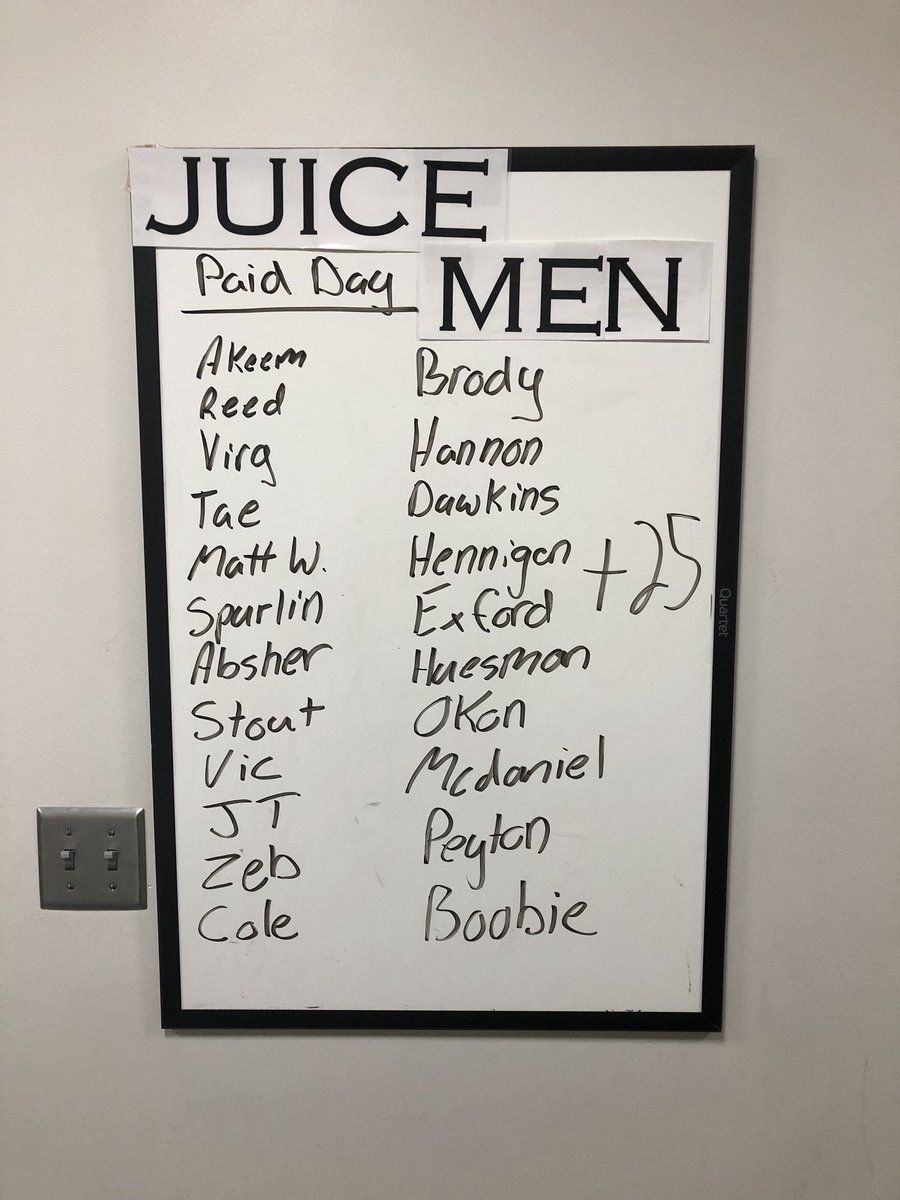 JUICE
MEN
Paid Day
Akeem
Reed
Virg
Tae
Matt W.
Spurlin
Absher
Stout
Vic
JT
Zeb
Cole
Brody
Hannon
Dawkins
Hennigan
Exford
Huesman
Okon
Mcdaniel
Peyton
Boobie
+25
Quartet